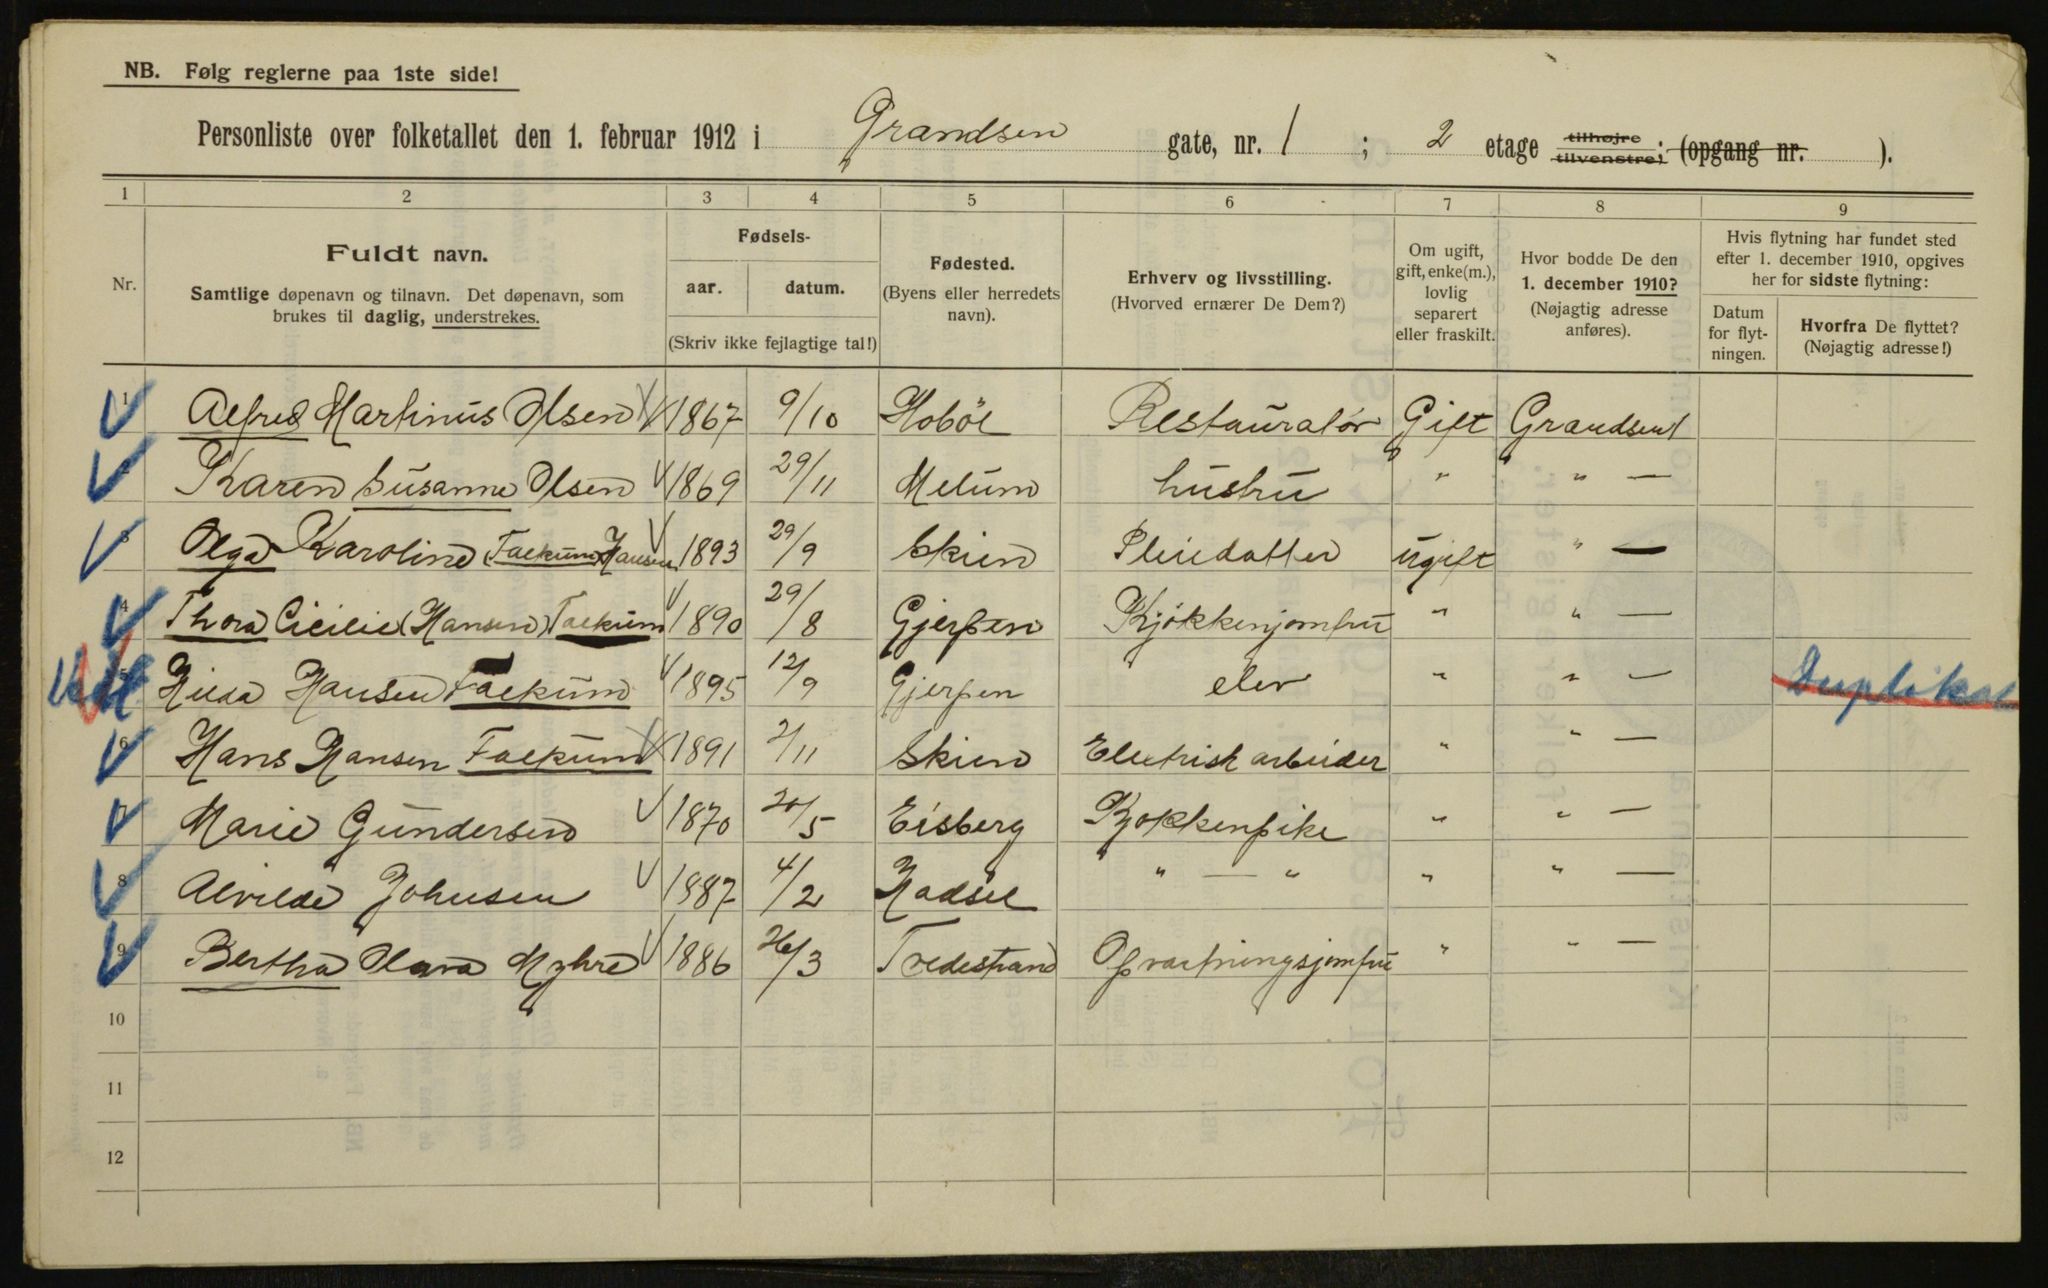 NB. Følg reglerne paa 1ste side!
Personliste over folketallet den 1. februar 1912 i Grandsen gate, nr. 1 ; 2 etage tilhøjre tilvenstre; (opgang nr. ).
1 2 3 4 5 6 7 8 9
Nr.
Fuldt navn.
Samtlige døpenavn og tilnavn. Det døpenavn, som
brukes til daglig, understrekes.
Fødsels-
aar. datum.
(Skriv ikke fejlagtige tal!)
Fødested.
(Byens eller herredets
navn).
Erhverv og livsstilling.
(Hvorved ernærer De Dem?)
Om ugift,
gift, enke(m.),
lovlig
separert
eller fraskilt.
Hvor bodde De den
1. december 1910?
(Nøjagtig adresse
anføres).
Hvis flytning har fundet sted
efter 1. december 1910, opgives
her for sidste flytning:
Datum
for flyt-
ningen.
Hvorfra De flyttet?
(Nøjagtig adresse!)
1 Alfred Martinus Olsen 1867 9/10 Hobøl Restauratør Gift Grandsen 1
2 Karen Susanne Olsen 1869 29/11 Melum hustru " " —
3 Olga Karoline (Falkum) Hansen 1893 29/9 Skien Pleiedatter ugift " —
4 Thora Cicilie (Hansen) Falkum 1890 29/8 Gjerpen Kjøkkenjomfru " " —
5 Hilda Hansen Falkum 1895 12/9 Gjerpen elev " " — Duplikat
6 Hans Hansen Falkum 1891 2/11 Skien Elektrisk arbeider " " —
7 Marie Gundersen 1870 20/5 Eisberg Kjøkkenpike " " —
8 Alvilde Johnsen 1887 4/2 Hadsel " — " " " —
9 Bertha Olava Myhre 1886 26/3 Tvedestrand Opvartningsjomfru " " —
10
11
12